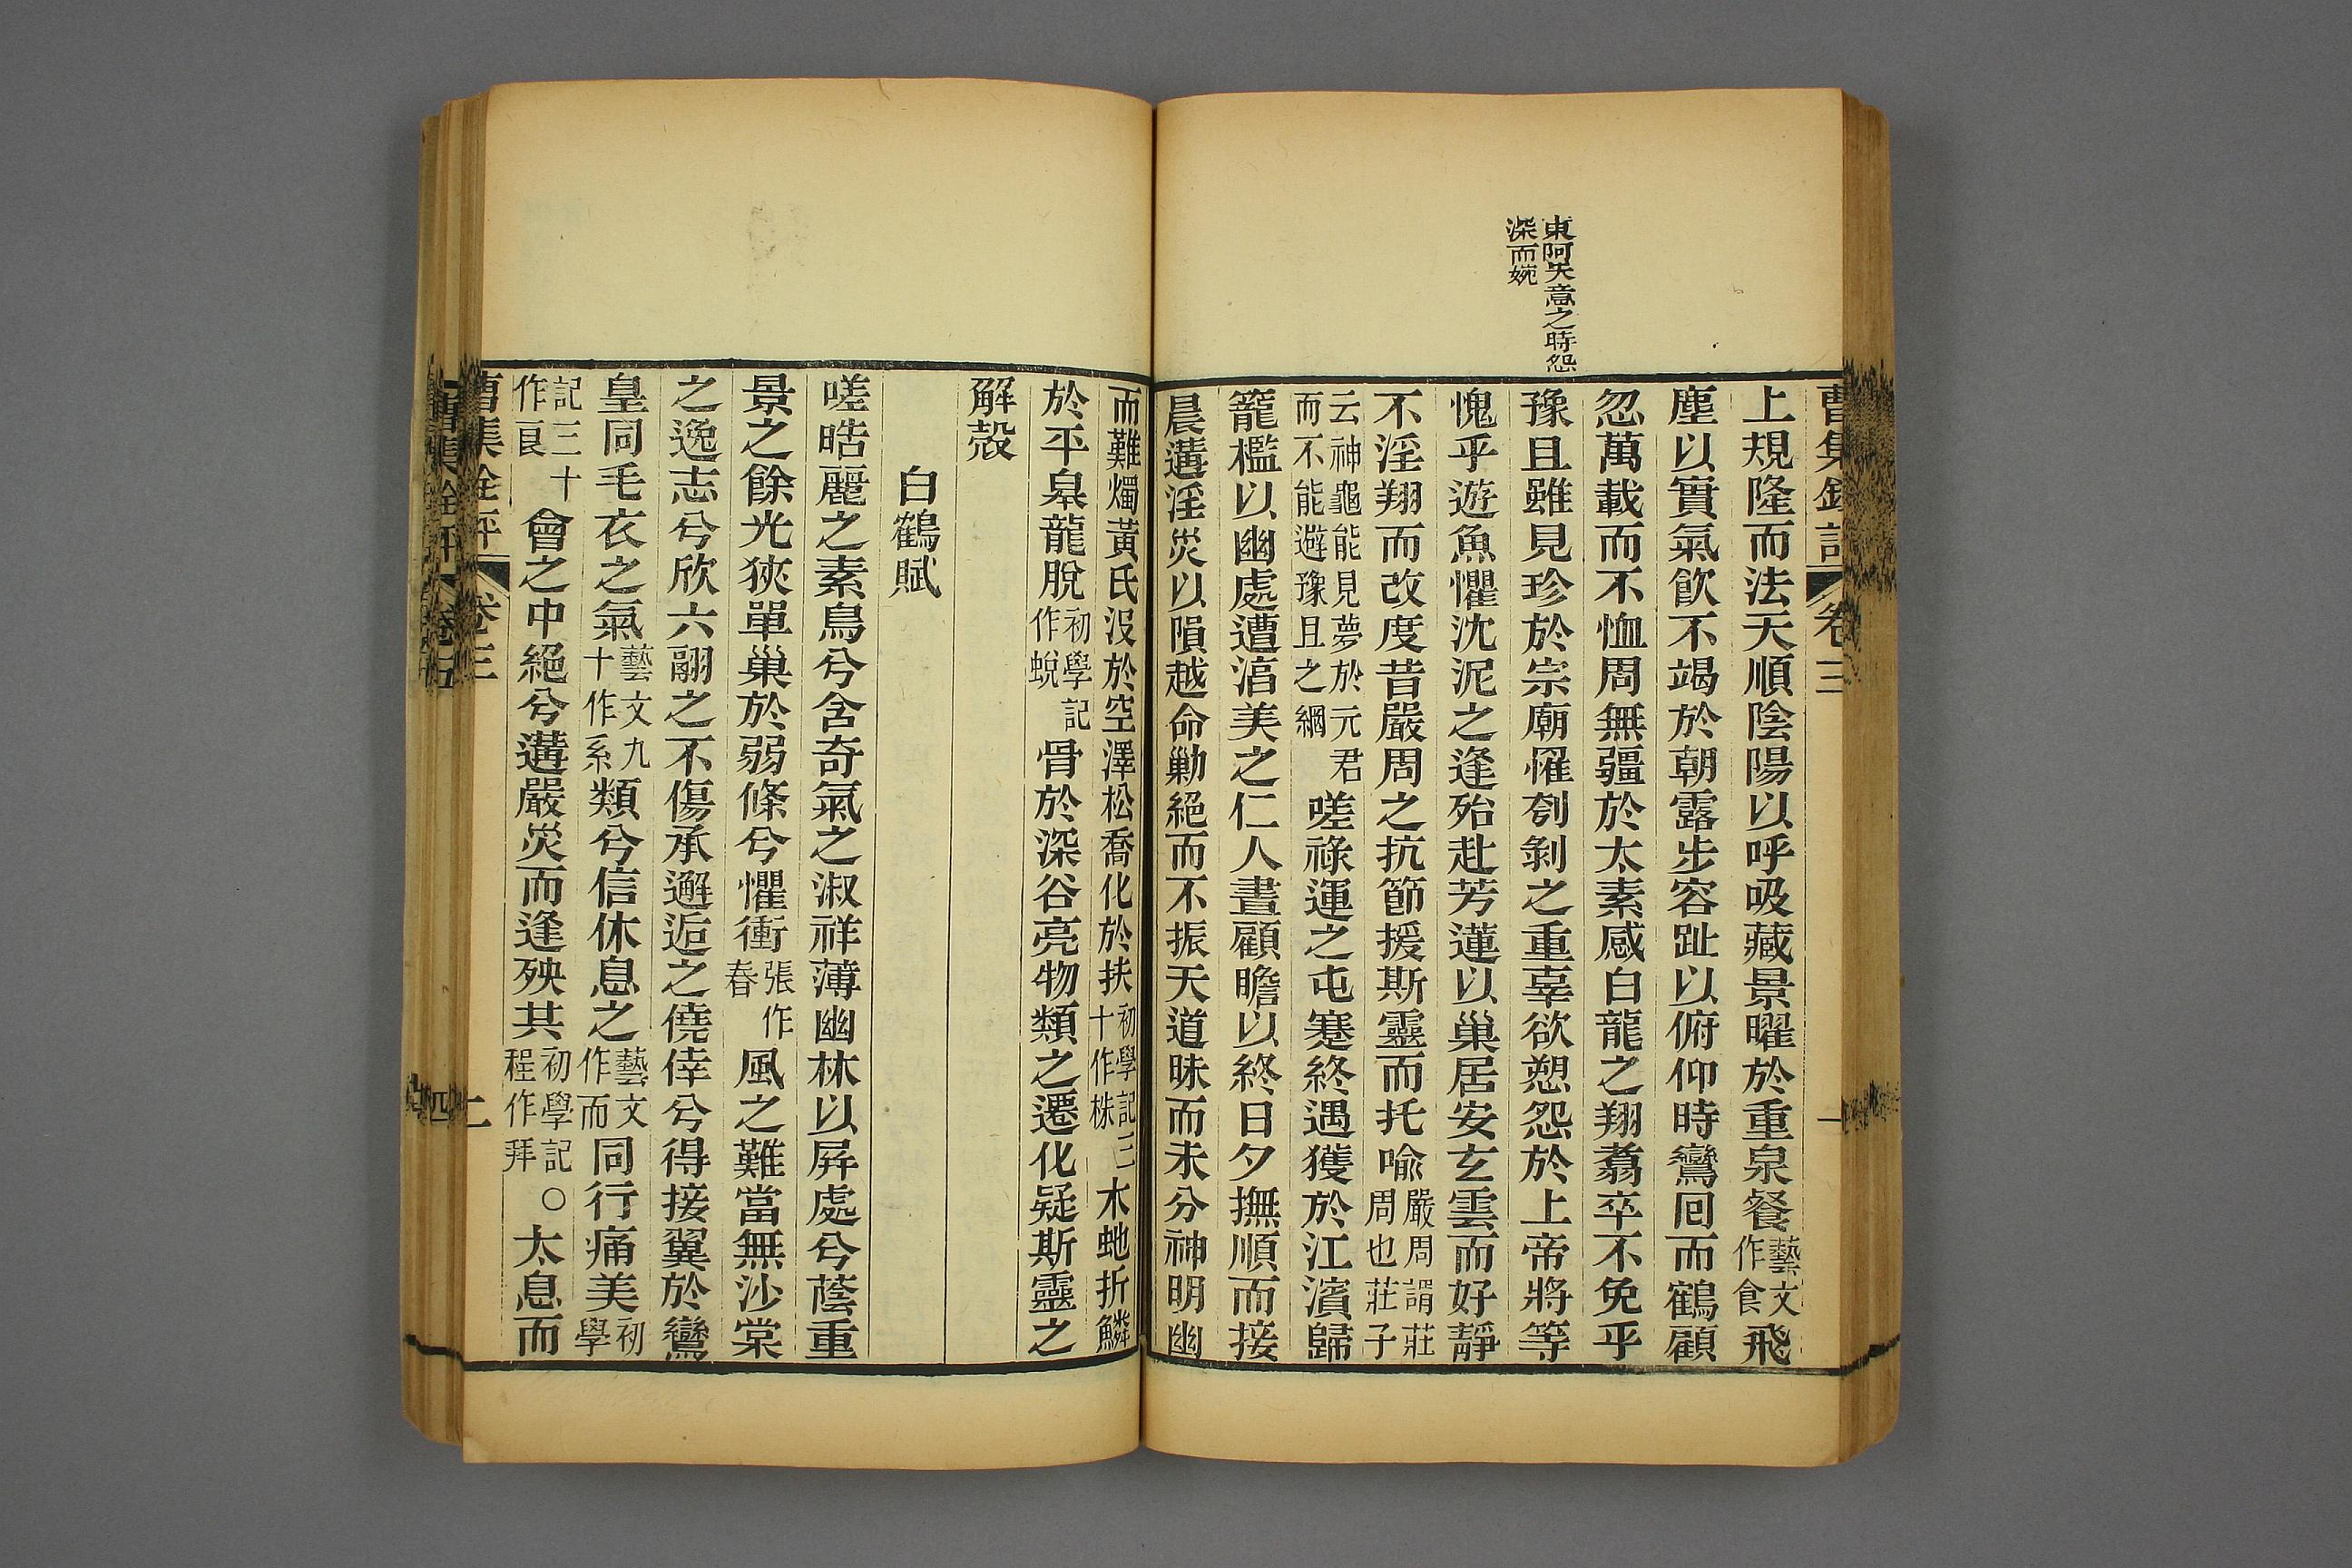 東阿失意之時怨
深而婉
曹集銓評 卷三 一
上規隆而法天順陰陽以呼吸藏景曜於重泉餐藝文作食飛
塵以實氣飲不竭於朝露步容趾以俯仰時鸞回而鶴顧
忽萬載而不恤周無疆於太素感白龍之翔翥卒不免乎
豫且雖見珍於宗廟罹刳剝之重辜欲愬怨於上帝將等
愧乎遊魚懼沈泥之逢殆赴芳蓮以巢居安玄雲而好靜
不淫翔而改度昔嚴周之抗節援斯靈而托喻嚴周謂莊周也莊子
云神龜能見夢於元君而不能避豫且之網嗟祿運之屯蹇終遇獲於江濱歸
籠檻以幽處遭湻美之仁人晝顧瞻以終日夕撫順而接
晨遘淫災以隕越命勦絕而不振天道昧而未分神明幽
而難燭黃氏沒於空澤松喬化於扶初學記三十作株木虵折鱗
於平皋龍脫初學記作蛻骨於深谷亮物類之遷化疑斯靈之
解殼
白鶴賦
嗟皓麗之素鳥兮含奇氣之淑祥薄幽林以屏處兮蔭重
景之餘光狹單巢於弱條兮懼衝張作春風之難當無沙棠
之逸志兮欣六翮之不傷承邂逅之僥倖兮得接翼於鸞
皇同毛衣之氣藝文九十作系類兮信休息之藝文作而同行痛美初學
記三十作良會之中絕兮遘嚴災而逢殃共初學記程作拜○太息而
曹集銓評 卷三 二